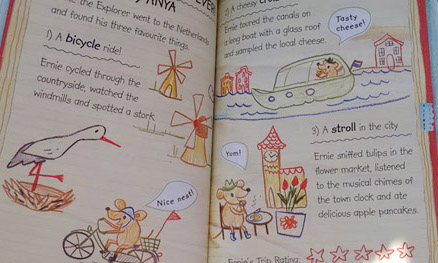 ANYA
the Explorer went to the Netherlands
and found his three favourite things.
1) A bicycle ride!
Ernie cycled through the
countryside, watched the
windmills and spotted a stork.
Nice nest!
A cheesy
Ernie toured the canals on
a long boat with a glass roof
and sampled the local cheese.
Tasty
cheese!
3) A stroll in the city
Ernie sniffed tulips in the
flower market, listened
to the musical chimes of
the town clock and ate
delicious apple pancakes.
Yum!
Ernie's Trip Rating: